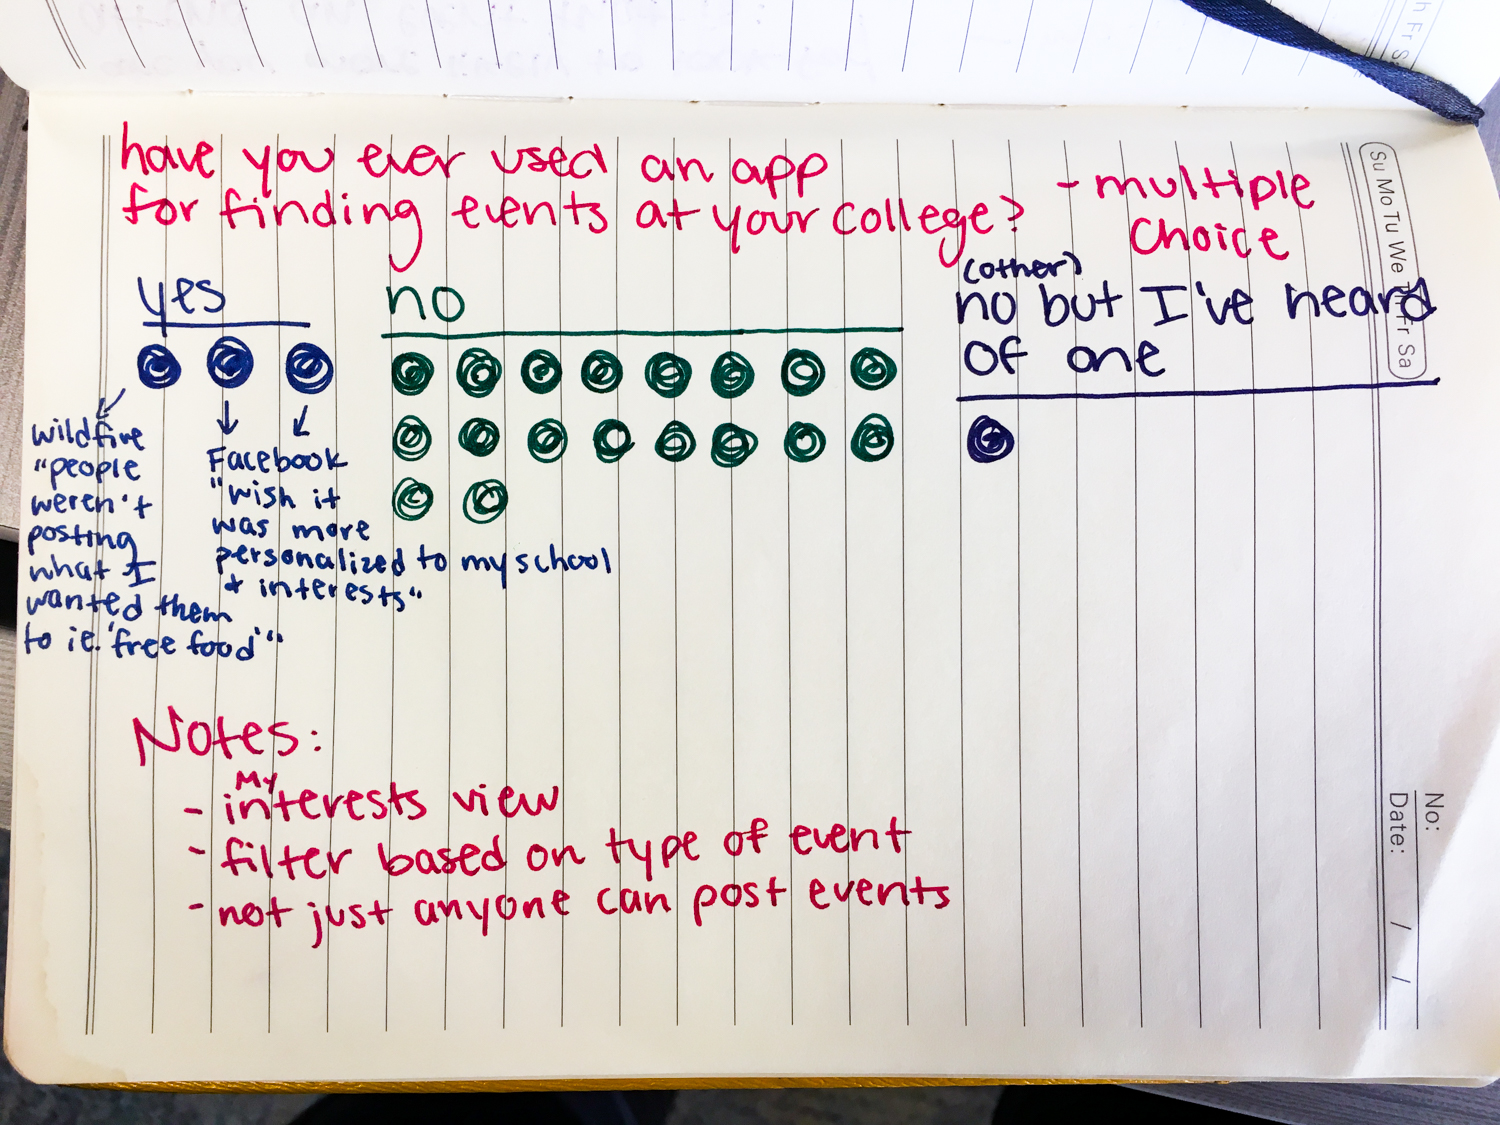 have you ever used an app
for finding events at your college?
- multiple
choice
yes
no
(other)
no but I've heard
of one
wildfire
"people
weren't
posting
what I
wanted them
to ie. 'free food'"
Facebook
"wish it
was more
personalized to my school
+ interests"
Notes:
- My interests view
- filter based on type of event
- not just anyone can post events
Su Mo Tu We Th Fr Sa
No:
Date: / /
h Fr S